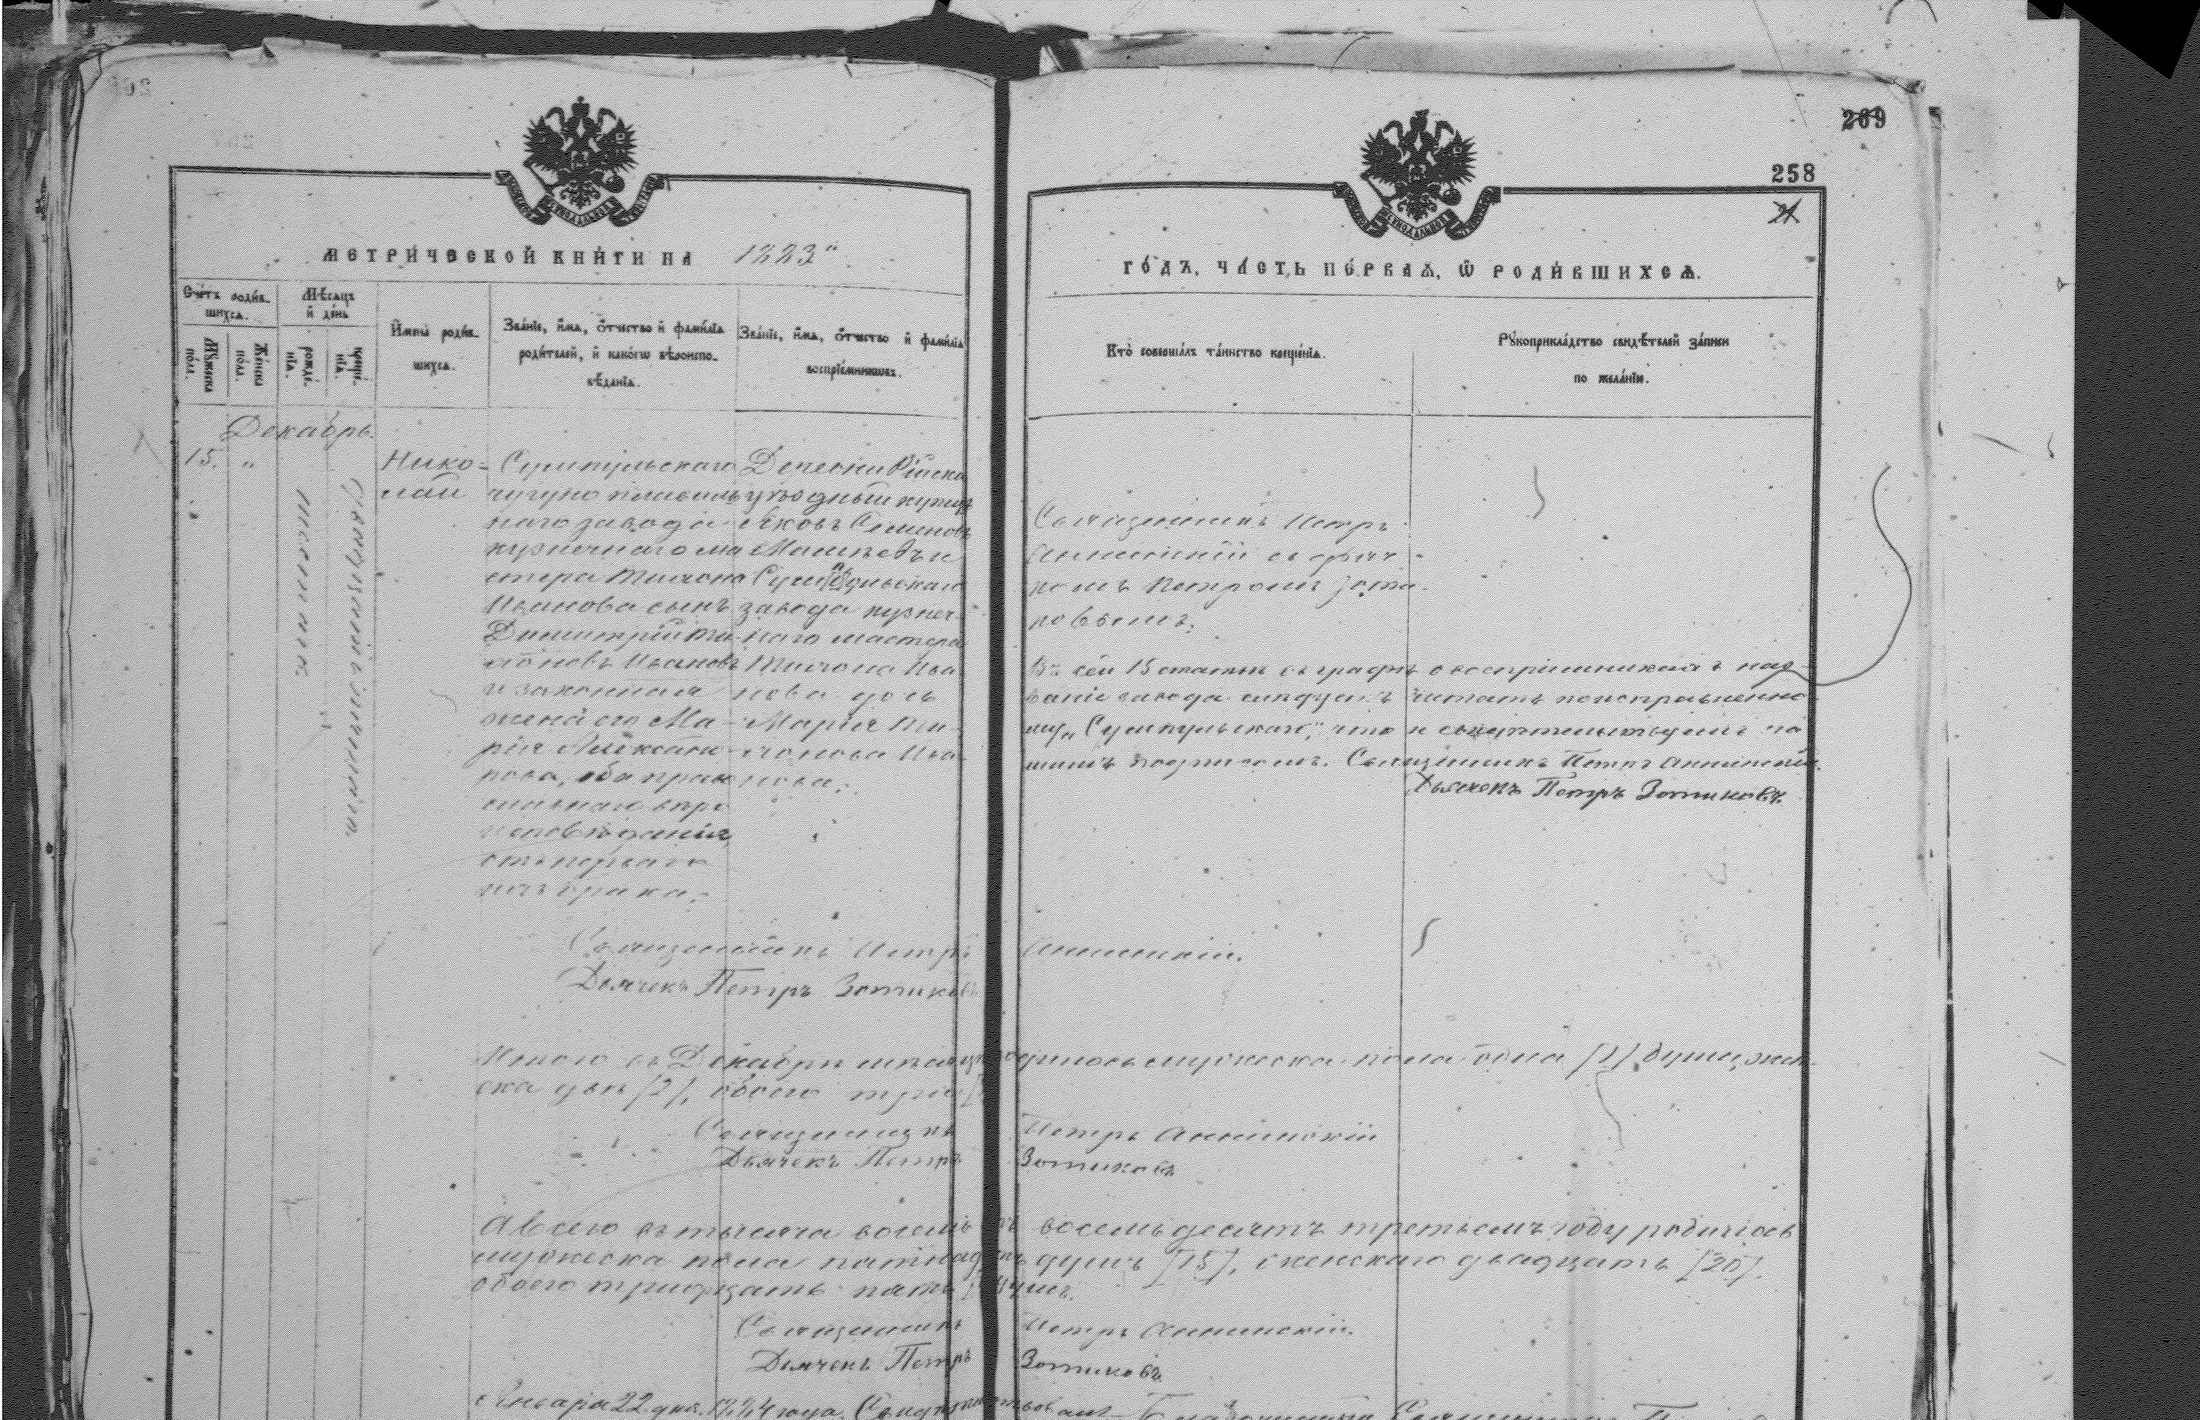 269
258
21
МЕТРИЧЕСКОЙ КНИГИ НА 1883й
ГОДЪ, ЧАСТЬ ПЕРВАЯ, Ѡ РОДИВШИХСЯ.
Счетъ родив-
шихся.
Мужеска
пола.
Женска
пола.
Мѣсяцъ
и день
рожде-
нїя.
креще-
нїя.
Имена родив-
шихся.
Званїе, имя, ѿчество и фамилїя
родителей, и какогѡ вѣроиспо-
вѣданїя.
Званїе, имя, ѿчество и фамилїя
воспрїемниковъ.
Кто совершалъ таинство крещенїя.
Рукоприкладство свидѣтелей записи
по желанїю.
Декабрь.
15. "
Нико-
лай
Сумпульскаго
чугуно плавиль
наго завода
кузнечнаго ма
стера Тихона
Иванова сынъ
Димитрій Ти-
хоновъ Ивановъ
и законная
жена его Ма-
рія
нова, оба прав
славнаго вѣро
исповѣданія,
отъ перваго
брака.
Деревни
Яковъ Семеновъ
и
завода кузнеч-
наго мастера
Тихона Ива
нова дочь
Марія Ти-
хонова Ива
нова.
Священникъ Петръ
Аннинскій съ дьяч-
комъ Петромъ Зоти-
ковымъ.
Въ сей 15 статьи въ графѣ о воспріемникахъ наз-
ваніе завода слѣдуетъ читать по исправленно-
му „Сумпульскаго", что и свидѣтельствуемъ на
шимъ подписомъ. Священникъ Петръ Аннинскій.
Дьячекъ Петръ Зотиковъ.
Священникъ Петръ Аннинскій.
Дьячекъ Петръ Зотиковъ
Итого въ Декабрѣ мѣсяцѣ родилось мужеска пола одна [1] душа, жен-
ска двѣ [2], обоего три
Священникъ Петръ Аннинскій
Дьячекъ Петръ Зотиковъ
А всего въ тысяча восемь сотъ восемьдесятъ третьемъ году родилось
мужеска пола пятнадцать душъ [15], женскаго двадцать [20].
обоего тридцать пять душъ.
Священникъ Петръ Аннинскій.
Дьячекъ Петръ Зотиковъ.
Января 22 дня 1884 года